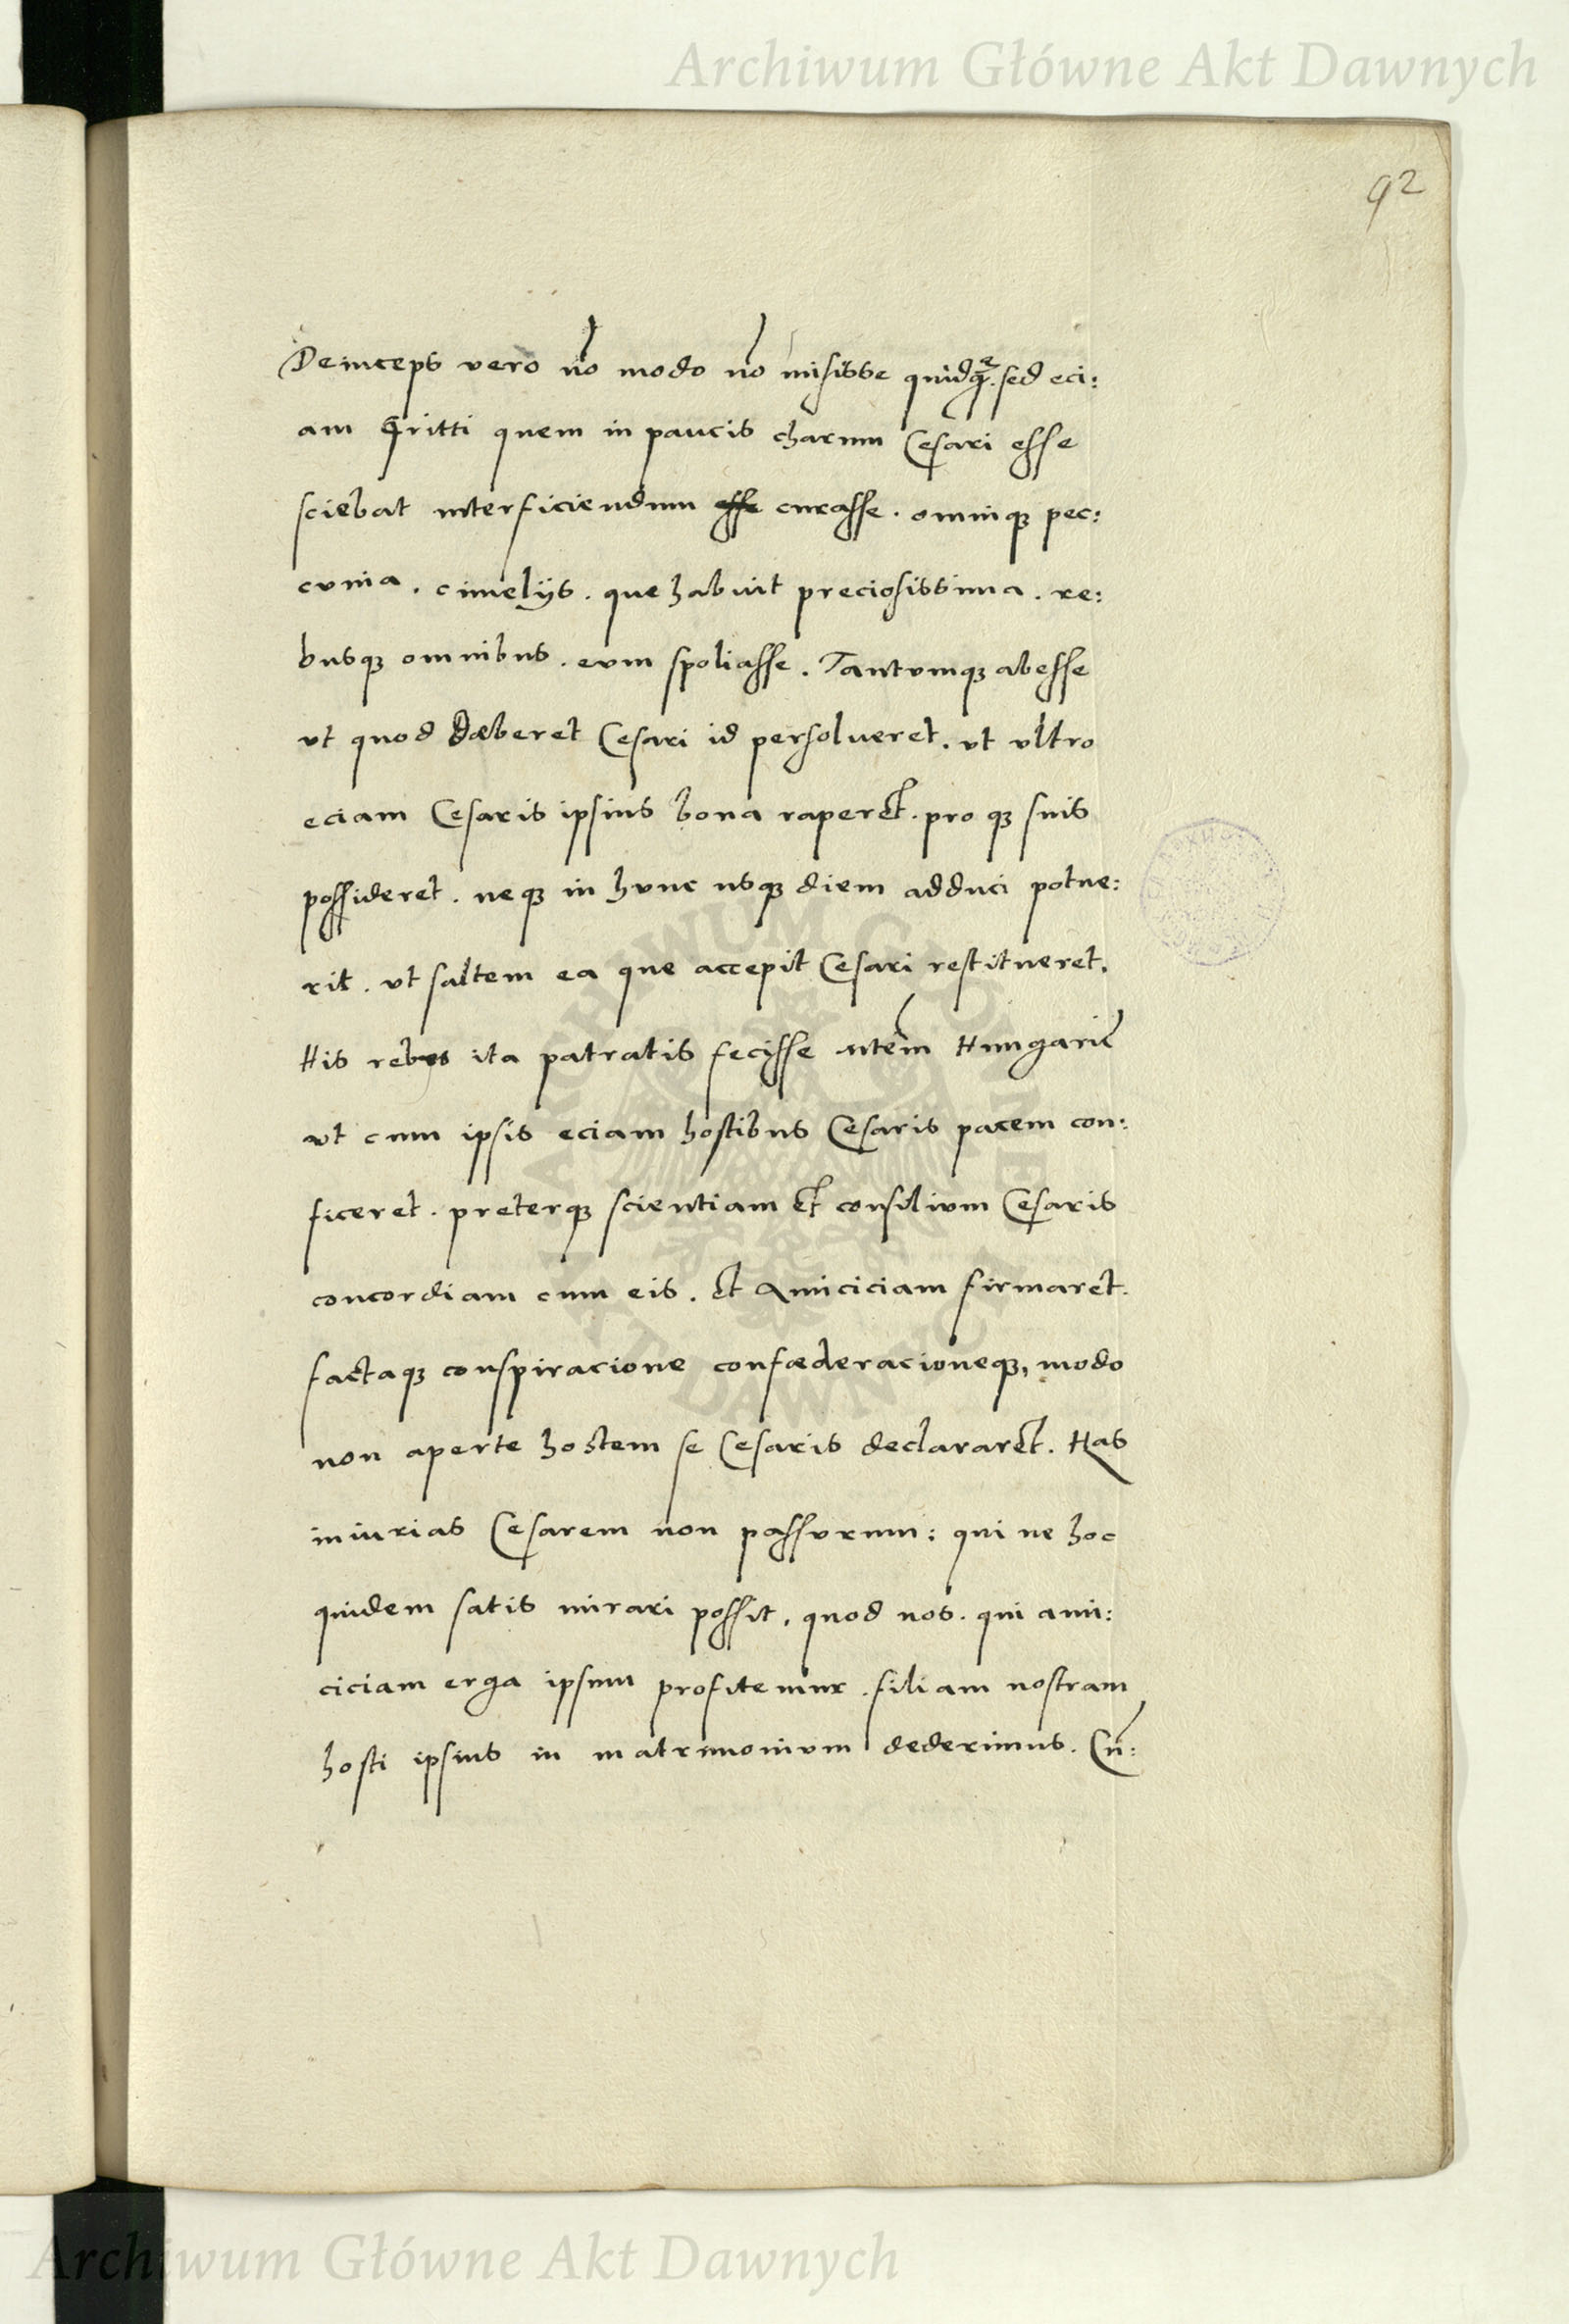 Archiwum Główne Akt Dawnych
92
Deinceps vero nõ modo nõ misisse quidq̃. sed eci:
am Gritti quem in paucis charum Cesari esse
sciebat interficiendum esse curasse. omniq3 pec:
cunia. cimelijs. que habuit preciosissima. re:
busq3 omnibus. eum spoliasse. Tantumq3 abesse
vt quod dæberet Cesari id persolueret. vt vltro
eciam Cesaris ipsius bona raperet. pro q3 suis
possideret. neq3 in hunc usq3 diem adduci potue:
rit. vt saltem ea que accepit Cesari restitueret.
His rebus ita patratis fecisse Hungarię
vt cum ipsis eciam hostibus Cesaris pacem con:
ficeret. preterq3 scientiam et consilium Cesaris
concordiam cum eis. et amiciciam firmaret.
factaq3 conspiracione confœderacioneq3, modo
non aperte hostem se Cesaris declararet. Has
iniurias Cesarem non passurum: qui ne hoc
quidem satis mirari possit, quod nos. qui ami:
ciciam erga ipsum profitemur. filiam nostram
hosti ipsius in matrimonium dederimus. Cũ:
ARCHIWUM GŁÓWNE
AKT DAWNYCH
Archiwum Główne Akt Dawnych